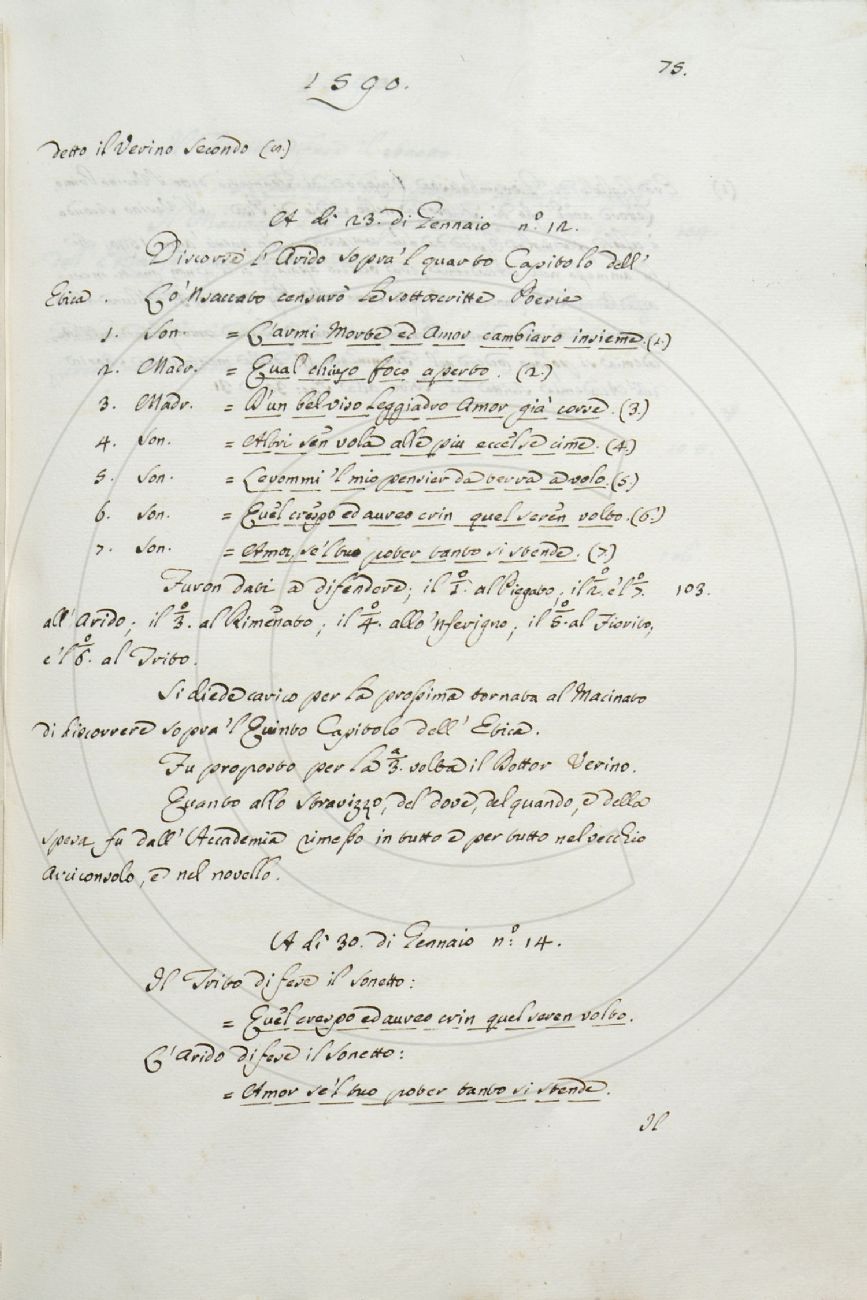 1590.
75.
detto il Verino secondo (5.)
A dì 23. di Gennaio n.° 12.
Discorse l'Arido sopra 'l quarto Capitolo dell'
Etica. Lo 'Nsaccato censurò le sottoscritte Poesie
1. Son. = L'armi Morte ed Amor cambiaro insieme. (1.)
2. Madr. = Qual chiuso foco aperto. (2.)
3. Madr. = D'un bel viso leggiadro Amor già corse. (3.)
4. Son. = Altri sen vola alle più eccelse cime. (4.)
5. Son. = Levommi 'l mio pensier da terra a volo. (5.)
6. Son. = Quel crespo ed aureo crin quel seren volto. (6.)
7. Son. = Amor, se 'l tuo poter tanto si stende. (7.)
Furon dati a difendere; il 1.° al Piegato; il 2.° e 'l 7.° 103.
all'Arido; il 3.° al Rimenato; il 4.° allo 'nferigno; il 5.° al Fiorito,
e 'l 6.° al Trito.
Si diede carico per la prossima tornata al Macinato
di discorrere sopra 'l Quinto Capitolo dell'Etica.
Fu proposto per la 3.ª volta il Dottor Verino.
Quanto allo stravizzo, del dove, del quando, e della
spesa fu dall'Accademia rimesso in tutto e per tutto nel vecchio
Arciconsolo, e nel novello.
A dì 30. di Gennaio n.° 14.
Il Trito difese il sonetto:
= Quel crespo ed aureo crin quel seren volto.
L'Arido difese il sonetto:
= Amor se 'l tuo poter tanto si stende.
Il